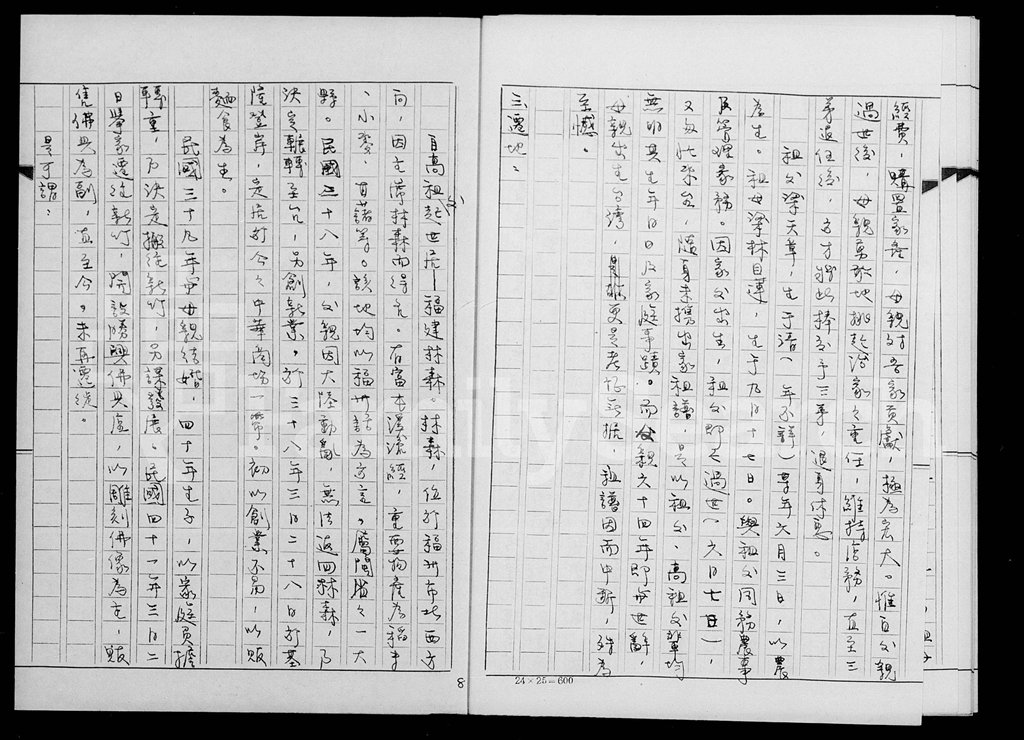 經費，購置家產，母親對吾家貢獻，極為宏大。惟自父親
過世後，母親勇敢地挑起治家之重任，維持店務，直至三
弟退伍後，方才將此棒交予三弟，退身休息。
祖父梁天草，生于清（年不詳）享年六月三日，以農
為生。祖母梁林自蓮，生于九月十七日。與祖父同務農事
及管理家務。因家父出生，祖父即已過世（六月七日），
又匆忙來台，隨身未攜出家祖譜，是以祖父、高祖父輩均
無明其生年月日及家庭事蹟。而父親六十四年即逝世辭，
母親出生台灣，更是考據無據，祖譜因而中斷，殊為
至憾。
三、遷地：
自高祖起世居福建林森。林森，位於福州市北西方
向，因主席林森而得名。右當本澤流經，重要物產為稻米
、小麥、甘藷等。該地均以福州話為方言。屬閩省之一大
縣。民國三十八年，父親因大陸動亂，無法返回林森，乃
決定輾轉至台，另創新業。於三十八年三月二十八日於基
隆登岸，定居於今之中華商場一帶。初以創業不易，以販
麵食為生。
民國三十九年與母親結婚，四十年生子，以家庭負擔
轉重，乃決定搬往新竹，另謀發展。民國四十一年三月二
日舉家遷往新竹，開設勝興佛具店，以雕刻佛像為主，販
售佛具為副，直至今。未再遷徙。
是可謂：
8
24×25=600